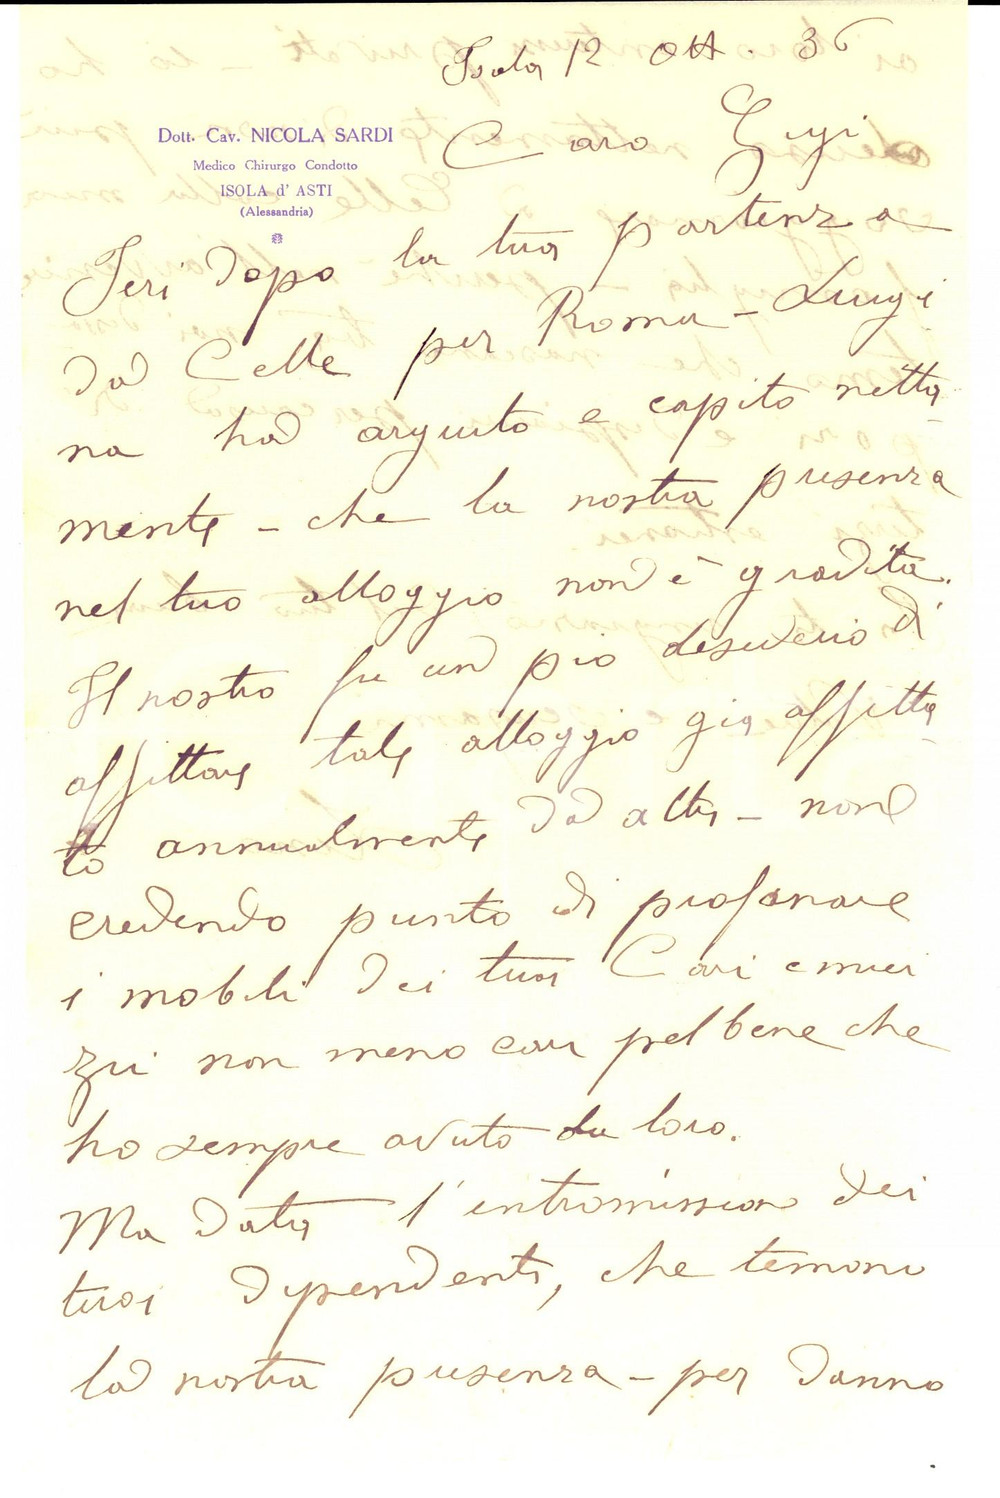 Isola 12 Ott. 36
Dott. Cav. NICOLA SARDI
Medico Chirurgo Condotto
ISOLA d' ASTI
(Alessandria)
Caro Gigi
Ieri dopo la tua partenza
da Celle per Roma - Luigi
na ha arguito e capito netta-
mente - che la nostra presenza
nel tuo alloggio non è gradita.
Il nostro fu un pio desiderio di
affittare tale alloggio già affitta-
to annualmente da altri - non
credendo punto di profanare
i mobili dei tuoi Cari e miei
zii non meno cari pel bene che
ho sempre avuto da loro.
Ma data l'intromission dei
tuoi dipendenti, che temono
la nostra presenza - per danno